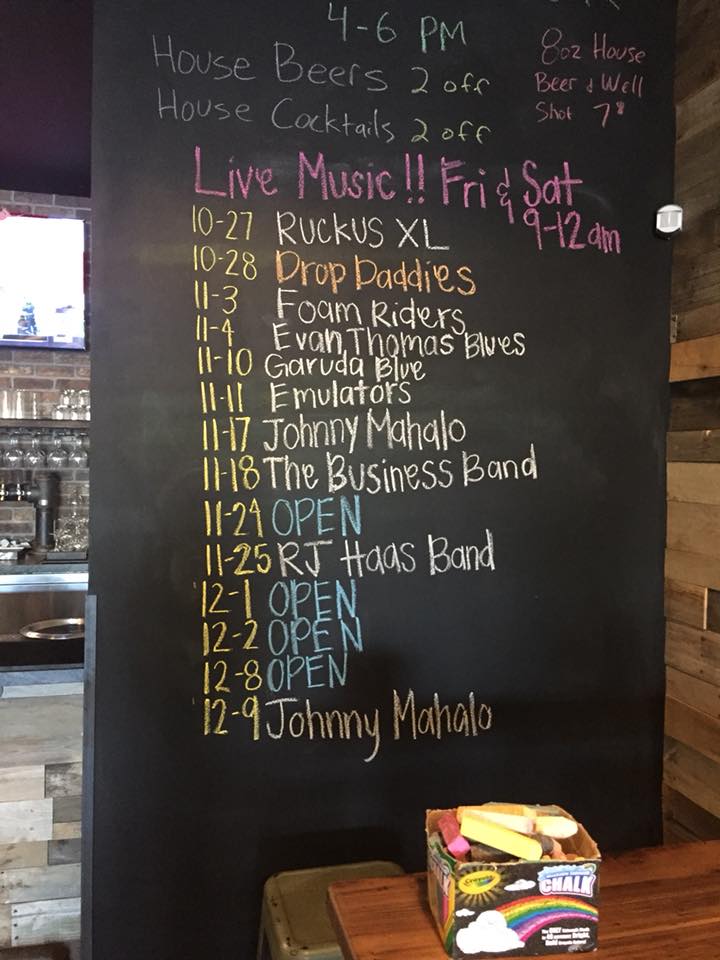 4-6 PM
House Beers 2 off
House Cocktails 2 off
8oz House
Beer & Well
Shot 7$
Live Music!! Fri & Sat
9-12am
10-27 Ruckus XL
10-28 Drop Daddies
11-3 Foam Riders
11-4 Evan Thomas Blues
11-10 Garuda Blue
11-11 Emulators
11-17 Johnny Mahalo
11-18 The Business Band
11-24 OPEN
11-25 RJ Haas Band
12-1 OPEN
12-2 OPEN
12-8 OPEN
12-9 Johnny Mahalo
Crayola
CHALK